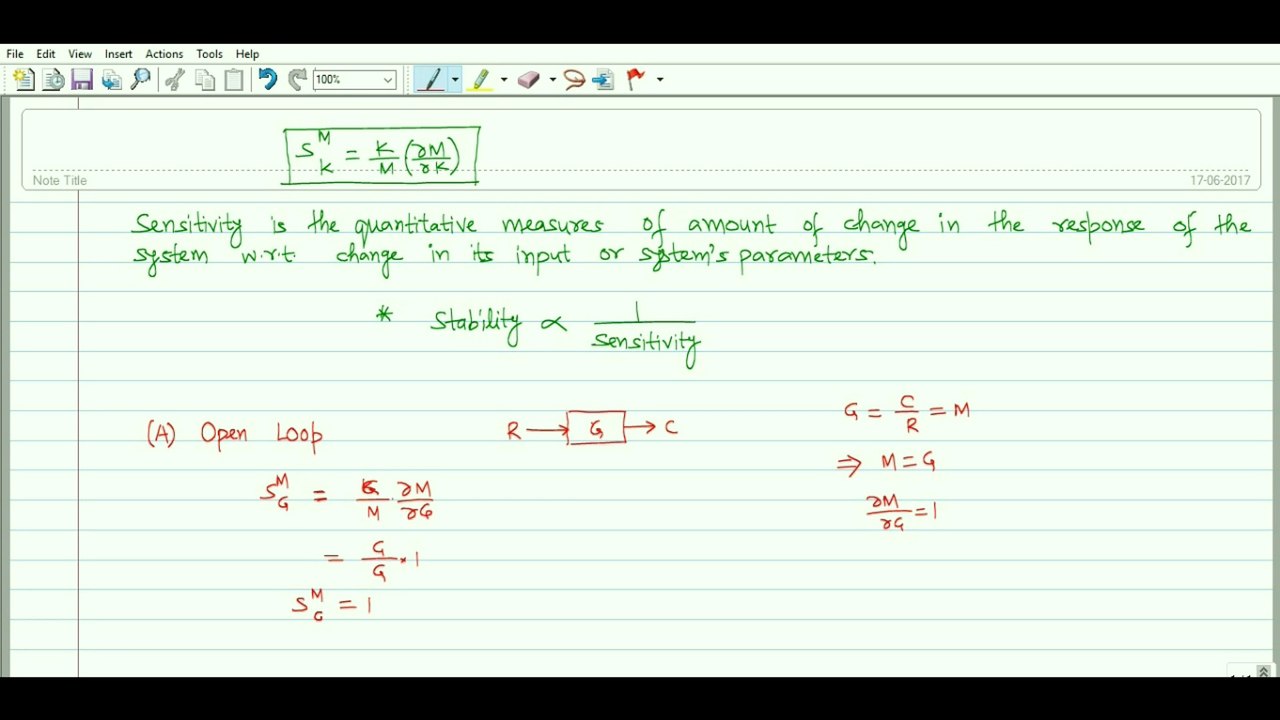 File Edit View Insert Actions Tools Help
100%
S^M_K = K/M (∂M/∂K)
Note Title
17-06-2017
Sensitivity is the quantitative measures of amount of change in the response of the
system w.r.t. change in its input or system's parameters.
* Stability ∝ 1/Sensitivity
(A) Open Loop
R → G → C
G = C/R = M
⇒ M = G
∂M/∂G = 1
S^M_G = G/M · ∂M/∂G
= G/G * 1
S^M_G = 1